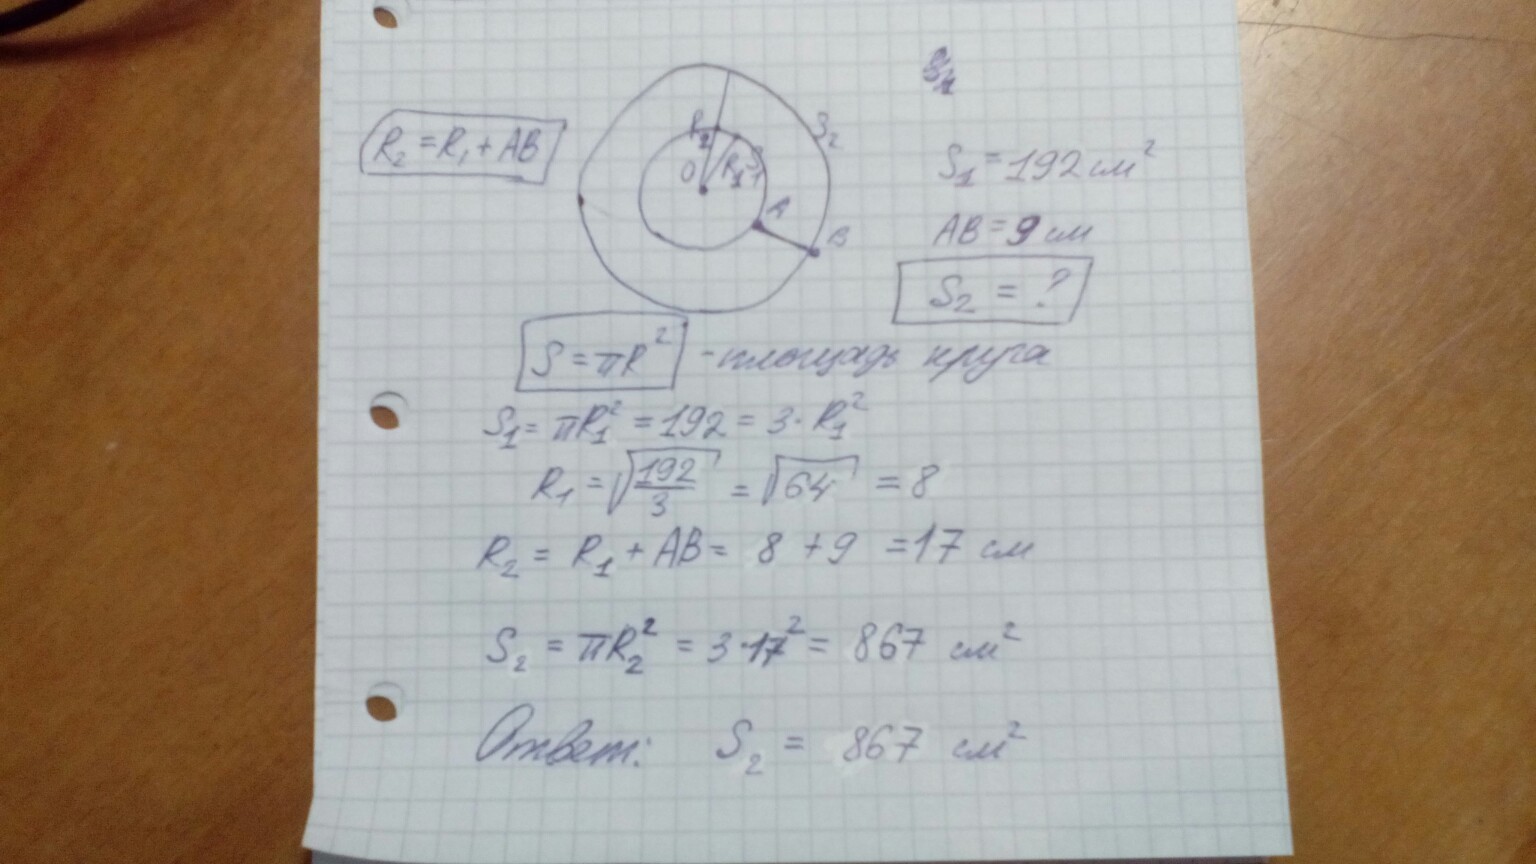 R₂ = R₁ + AB
R₂
O
R₁
S₁
S₂
A
B
S₁ = 192 см²
AB = 9 см
S₂ = ?
S = πR² - площадь круга
S₁ = πR₁² = 192 = 3 · R₁²
R₁ = √(192/3) = √64 = 8
R₂ = R₁ + AB = 8 + 9 = 17 см
S₂ = πR₂² = 3 · 17² = 867 см²
Ответ: S₂ = 867 см²